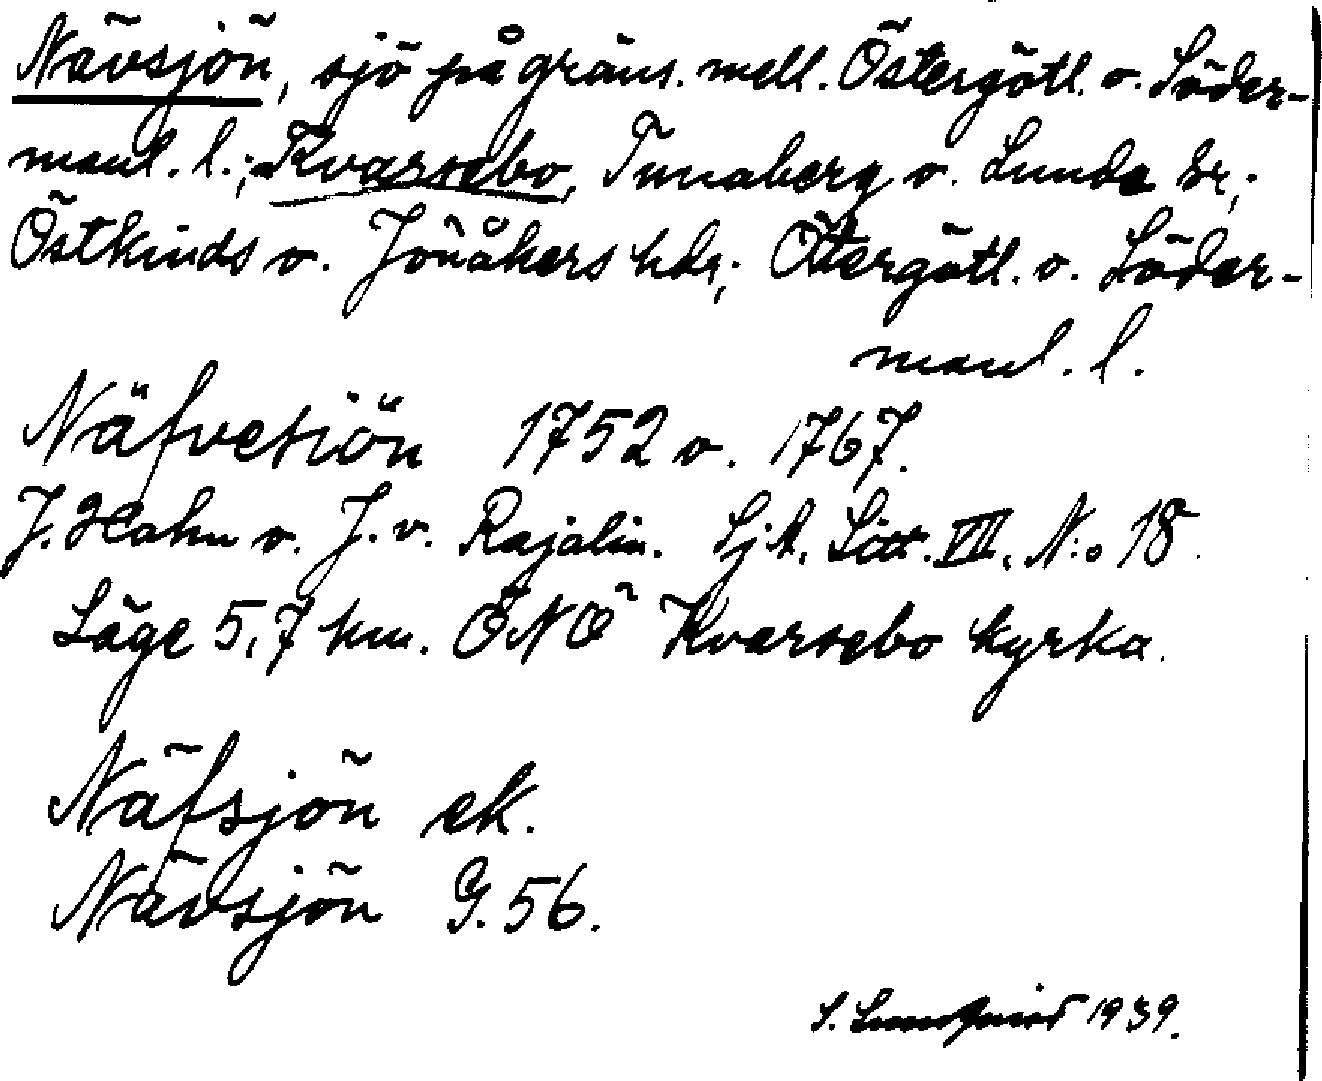 Nävsjön, sjö på gräns. mell. Östergötl. o. Söder-
manl. l.; Kvarsebo, Tunaberg o. Lunda sr;
Östkinds o. Jönåkers hdr; Östergötl. o. Söder-
manl. l.
Näfvesiön 1752 o. 1767.
J. Hahn o. J. v. Rajalin. Sjk. Litt. VII. N:o 18.
Läge 5,7 km. ONO Kvarsebo kyrka.
Näfsjön ek.
Nävsjön G. 56.
S. Lundqvist 1939.